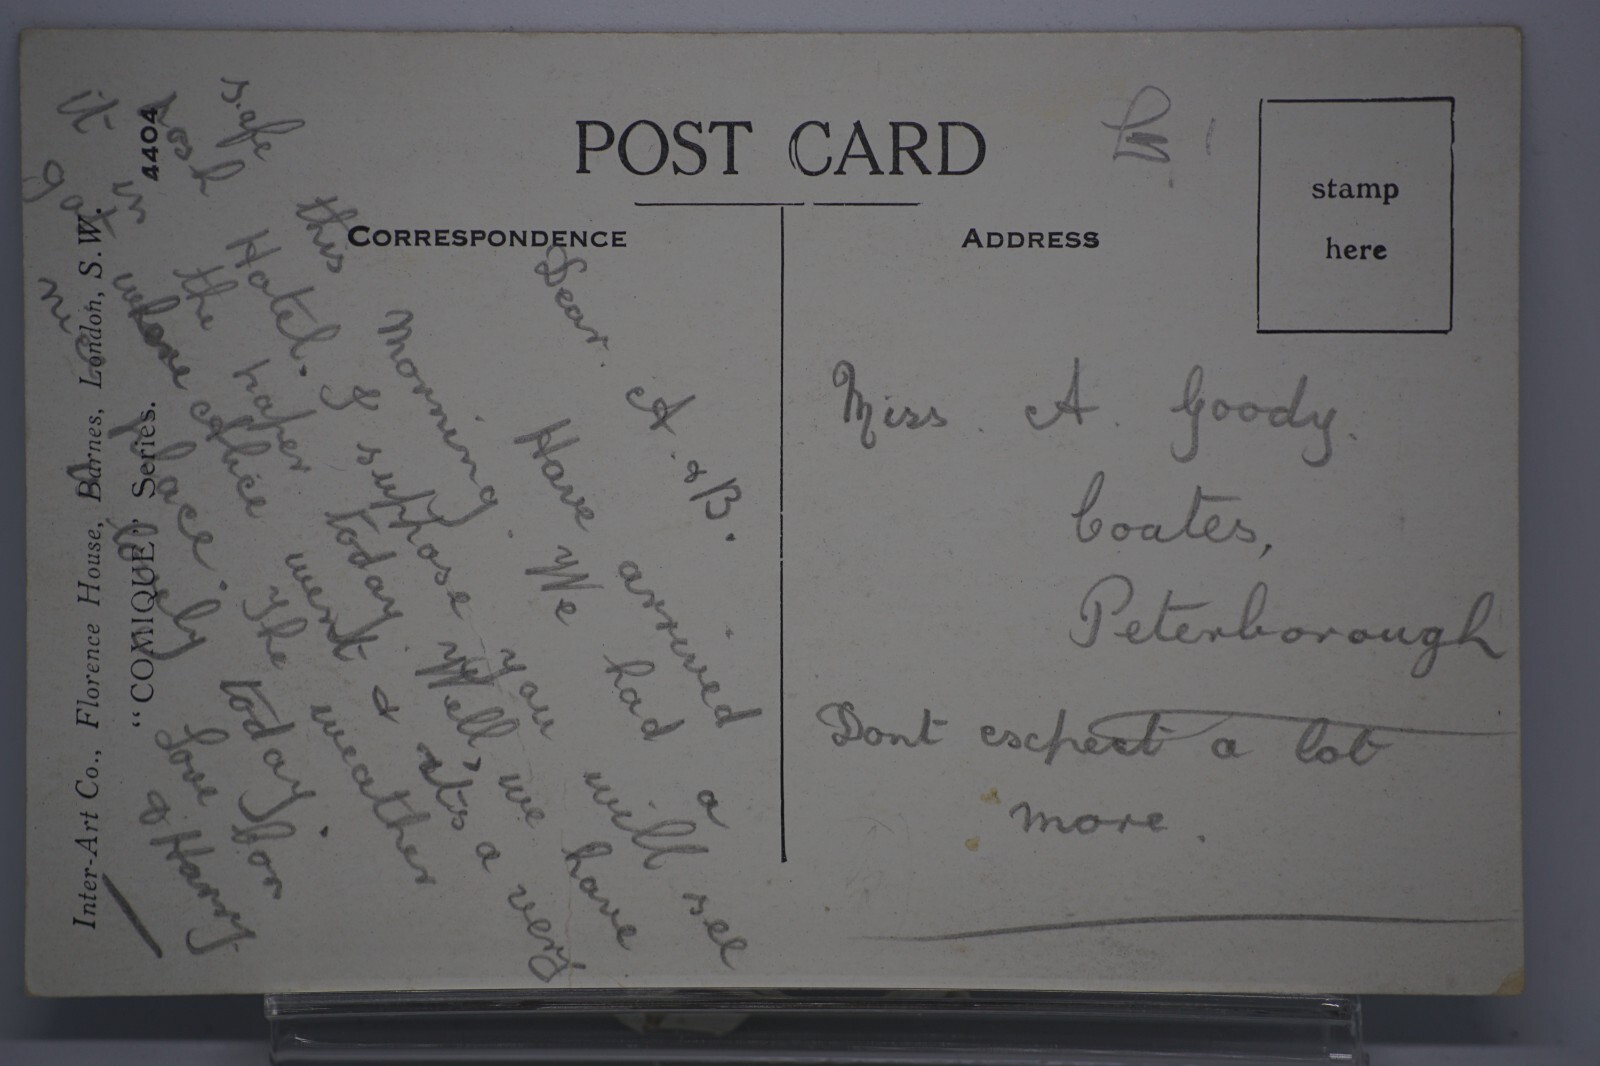 POST CARD
CORRESPONDENCE
ADDRESS
stamp
here
Dear. A. & B.
Have arrived
safe this Morning. We had a
posh Hotel. I suppose you will see
it in the paper today. Well, we have
got where Alice went & its a very
nice place. The weather
lovely today.
Love Bon
& Harry
Miss. A. Goody.
Coates,
Peterborough
Dont escpect a lot
more.
4404
"COMIQUE" Series.
Inter-Art Co., Florence House, Barnes, London, S.W.